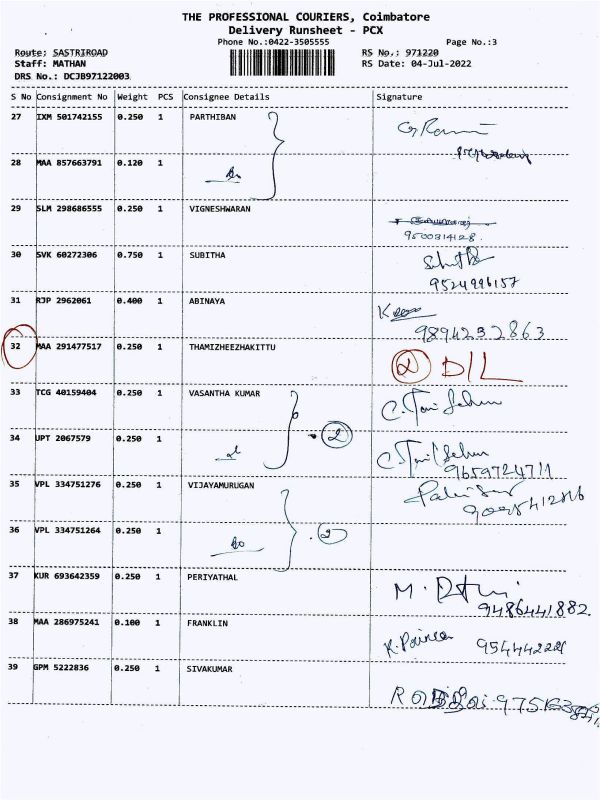 THE PROFESSIONAL COURIERS, Coimbatore
Delivery Runsheet - PCX
Phone No.:0422-3505555
Page No.:3
Route; SASTRIROAD
RS No.; 971220
Staff: MATHAN
RS Date: 04-Jul-2022
DRS No.: DCJB97122003
S No Consignment No Weight PCS Consignee Details Signature
27 IXM 501742155 0.250 1 PARTHIBAN
28 MAA 857663791 0.120 1
29 SLM 298686555 0.250 1 VIGNESHWARAN
9500314128.
30 SVK 60272306 0.750 1 SUBITHA
9524996157
31 RJP 2962061 0.400 1 ABINAYA
9894232863
32 MAA 291477517 0.250 1 THAMIZHEEZHAKITTU
2 D/L
33 TCG 40159404 0.250 1 VASANTHA KUMAR
2
34 UPT 2067579 0.250 1
9659724711
35 VPL 334751276 0.250 1 VIJAYAMURUGAN
36 VPL 334751264 0.250 1
2
37 KUR 693642359 0.250 1 PERIYATHAL
9486441882
38 MAA 286975241 0.100 1 FRANKLIN
39 GPM 5222836 0.250 1 SIVAKUMAR